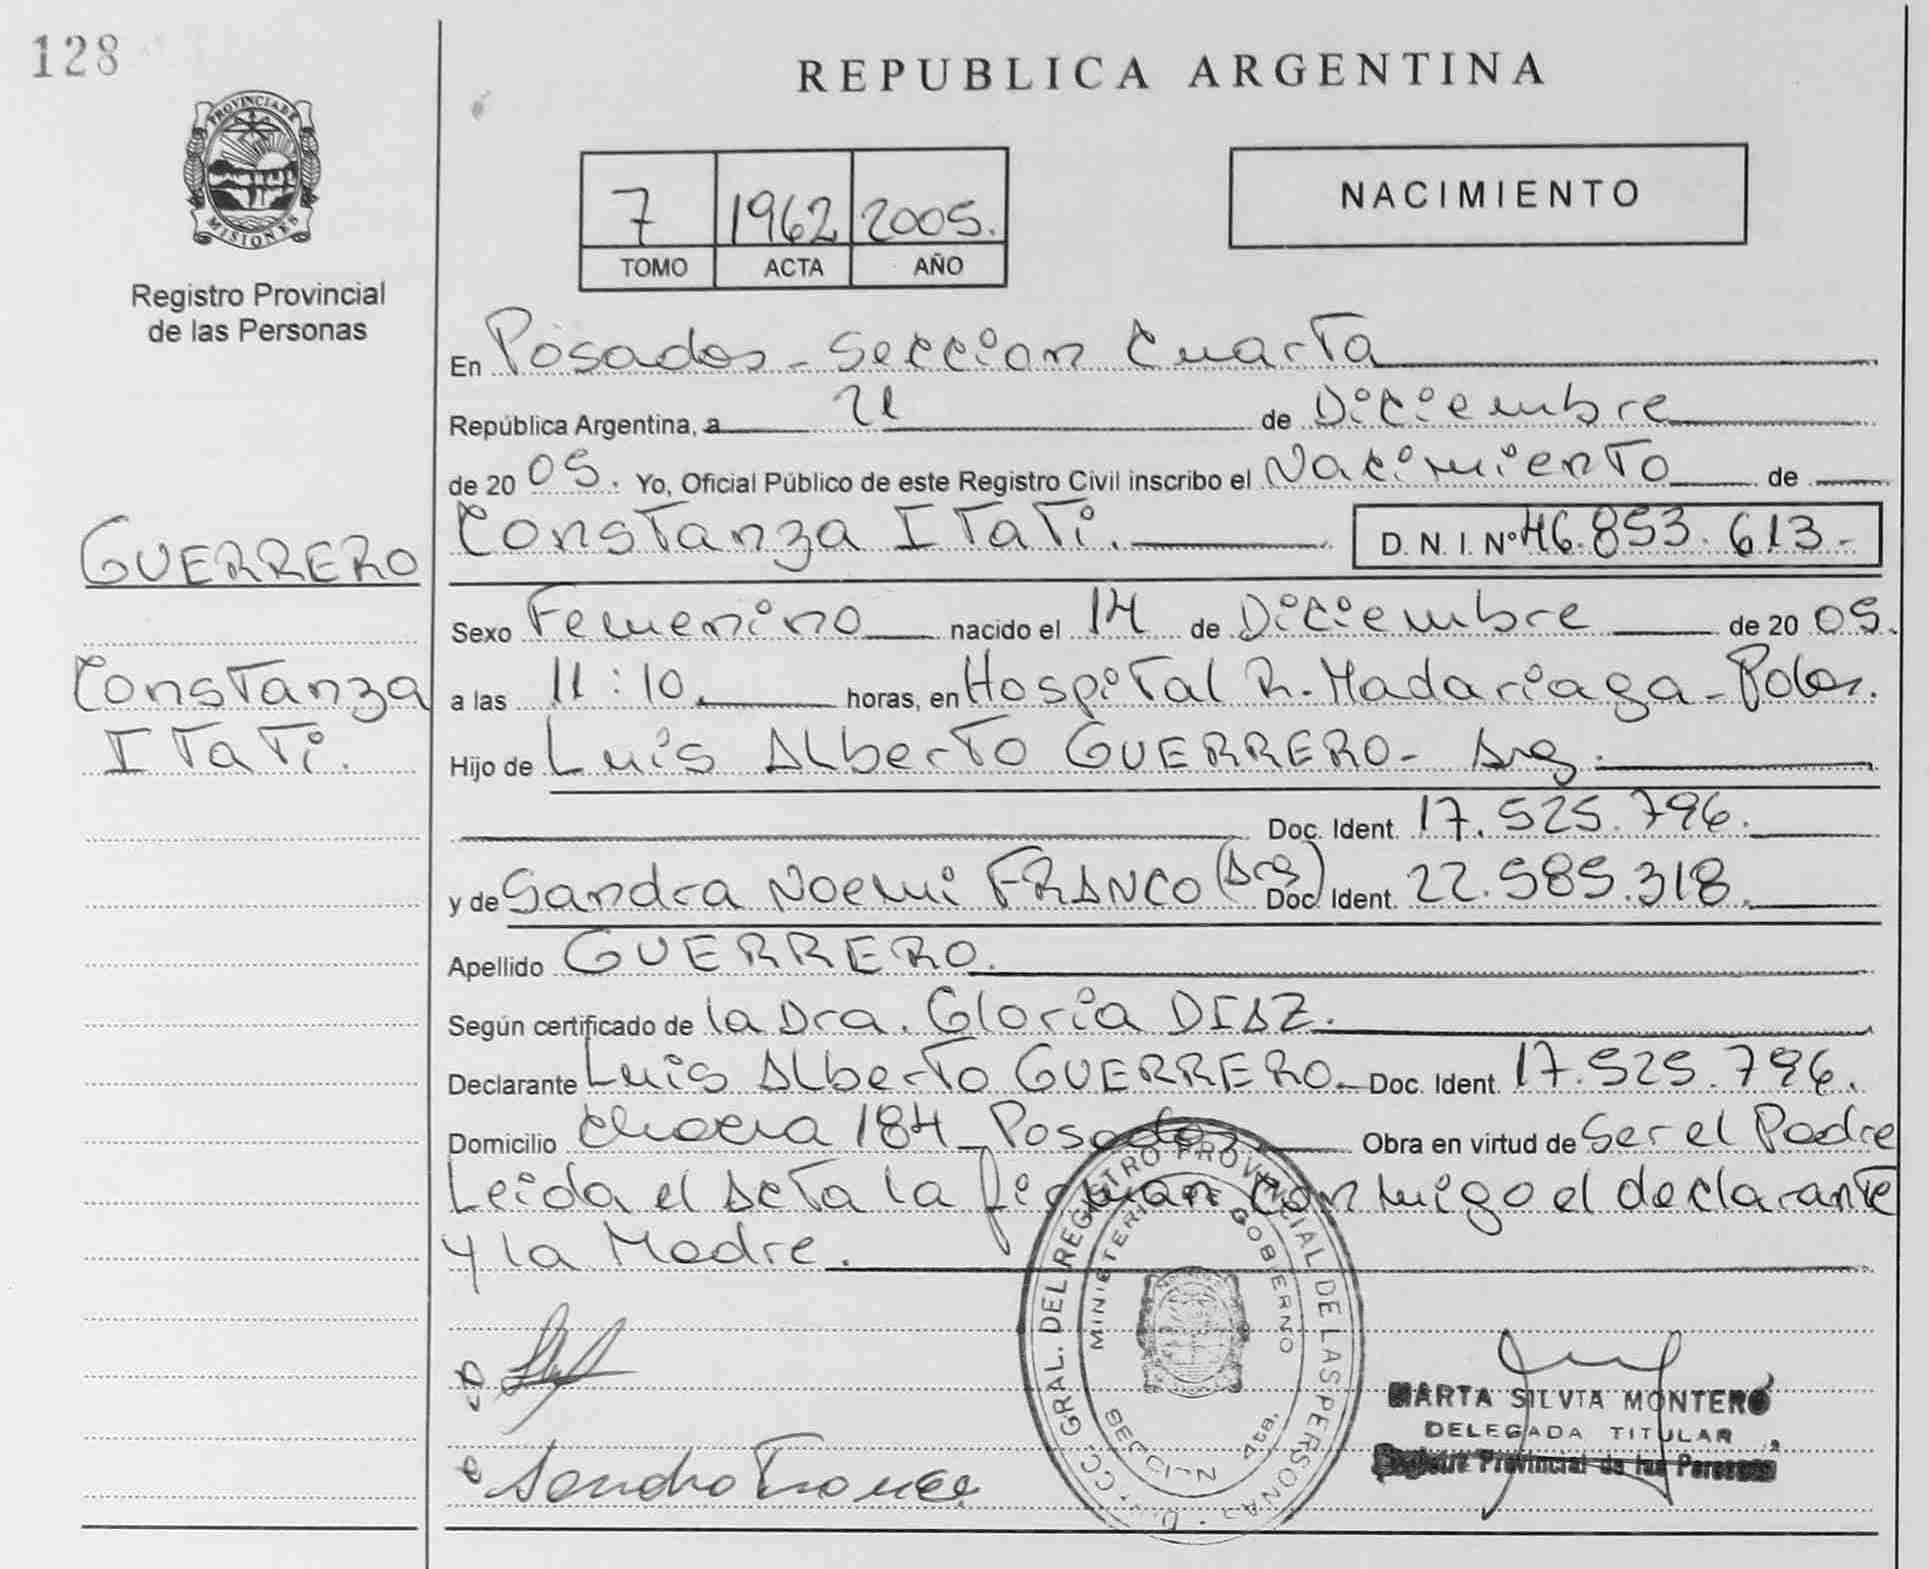 128
REPUBLICA ARGENTINA
PROVINCIA DE
MISIONES
Registro Provincial
de las Personas
7 1962 2005.
TOMO ACTA AÑO
NACIMIENTO
En Posadas - Seccion Cuarta
República Argentina, a 21 de Diciembre
de 20 05. Yo, Oficial Público de este Registro Civil inscribo el Nacimiento de
GUERRERO
Constanza Itati.
Constanza Itati. D. N. I. Nº 46.853.613.-
Sexo Femenino nacido el 14 de Diciembre de 20 05.
a las 11:10. horas, en Hospital R. Madariaga - Pdas.
Hijo de Luis Alberto GUERRERO - Arg.
Doc. Ident. 17.525.796.
y de Sandra Noemi FRANCO (Arg) Doc. Ident. 22.585.318.
Apellido GUERRERO.
Según certificado de la Dra. Gloria DIAZ.
Declarante Luis Alberto GUERRERO. Doc. Ident. 17.525.796.
Domicilio Chacra 184 - Posadas Obra en virtud de Ser el Padre
Leida el Acta la firman conmigo el declarante
y la Madre.
GRAL. DEL REGISTRO PROVINCIAL DE LAS PERSONAS
MINISTERIO DE GOBIERNO
SECCION 4ta.
MARTA SILVIA MONTERO
DELEGADA TITULAR
Registro Provincial de las Personas